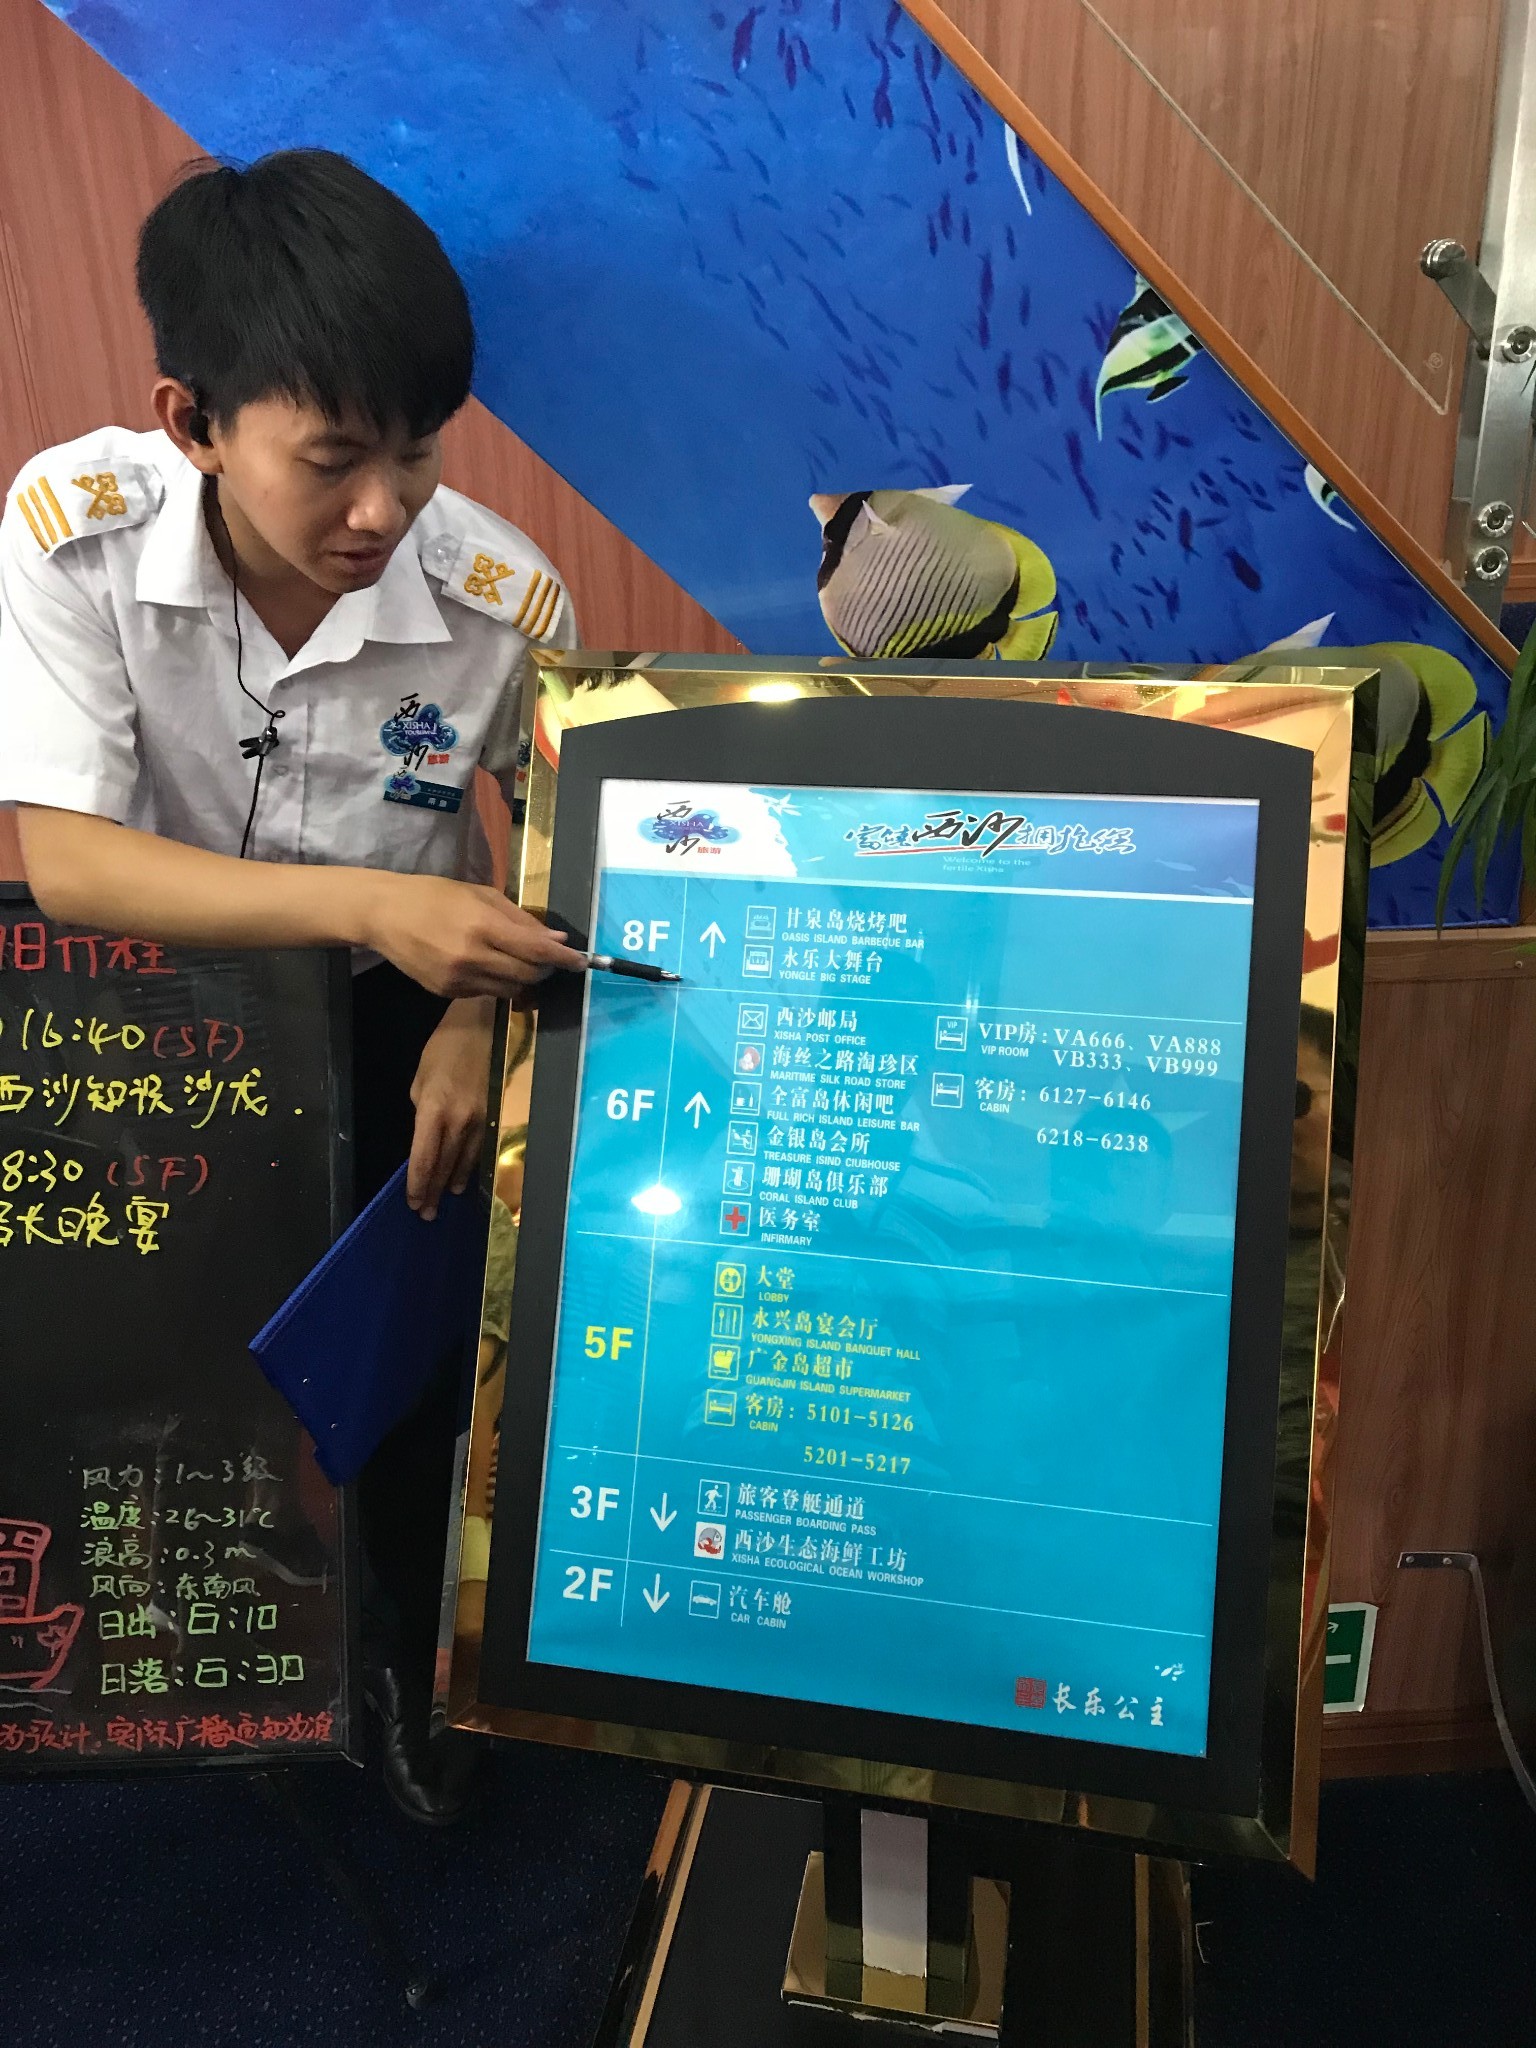 西沙
XISHA
TOURISM
旅游
西沙
XISHA
旅游
富饶西沙拥抱您
Welcome to the
fertile Xisha
8F
甘泉岛烧烤吧
OASIS ISLAND BARBECUE BAR
永乐大舞台
YONGLE BIG STAGE
6F
西沙邮局
XISHA POST OFFICE
海丝之路淘珍区
MARITIME SILK ROAD STORE
全富岛休闲吧
FULL RICH ISLAND LEISURE BAR
金银岛会所
TREASURE ISIND CIUBHOUSE
珊瑚岛俱乐部
CORAL ISLAND CLUB
医务室
INFIRMARY
VIP
VIP房：VA666、VA888
VIP ROOM
VB333、VB999
客房：6127-6146
CABIN
6218-6238
5F
大堂
LOBBY
永兴岛宴会厅
YONGXING ISLAND BANQUET HALL
广金岛超市
GUANGJIN ISLAND SUPERMARKET
客房：5101-5126
CABIN
5201-5217
3F
旅客登艇通道
PASSENGER BOARDING PASS
西沙生态海鲜工坊
XISHA ECOLOGICAL OCEAN WORKSHOP
2F
汽车舱
CAR CABIN
长乐公主
16:40(5F)
西沙知识沙龙.
8:30(5F)
晚宴
风力:1~3级
温度:26~31℃
浪高:0.3m
风向:东南风
日出:6:10
日落:6:30
为预计,实际广播通知为准